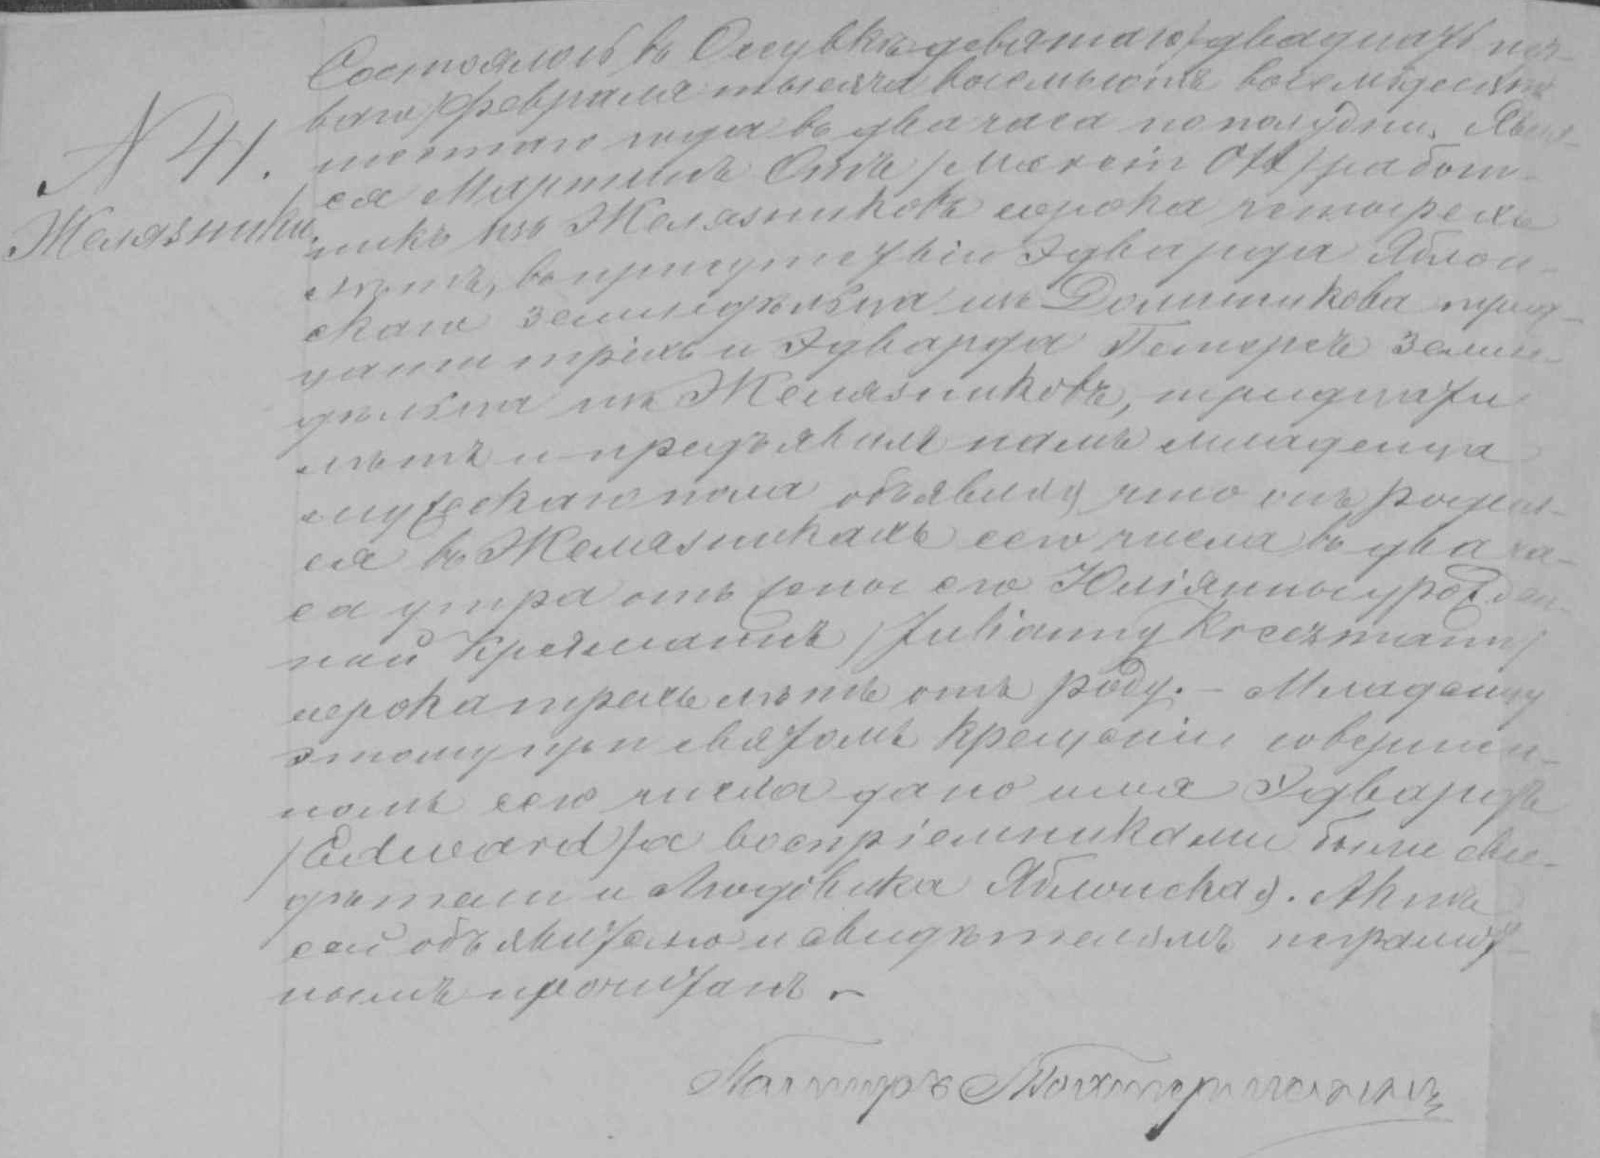 N 41.
Желязники.
Состоялось въ Осувкѣ девятаго/двадцать пер-
ваго/февраля тысяча восемьсотъ восемьдесятъ
года въ два часа по полудни. Явил-
ся Мартинъ Оттъ /Marcin Ott/ работ-
никъ изъ Желязниковъ сорока четырехъ
лѣтъ, въ присутствіи Эдварда Яблон-
скаго земледѣльца изъ Доминикова трид-
цати трехъ и Эдварда Петерсъ земле-
дѣльца изъ Желязниковъ, тридцати
лѣтъ и предъявилъ намъ младенца
мужескаго пола объявляя что онъ родил-
ся въ Желязникахъ сего числа въ два ча-
са утра отъ жены его Юліянны урожден-
ной Крецманнъ /Julianny Kreczmann/
сорока трехъ лѣтъ отъ роду. - Младенцу
этому при святомъ крещеніи совершен-
номъ сего числа дано имя Эдвардъ
/Edward/ а воспріемниками были сви-
дѣтели и Людвика Яблонская. Актъ
сей объявителю и свидѣтелямъ неграмот-
нымъ прочитанъ. -
Пасторъ